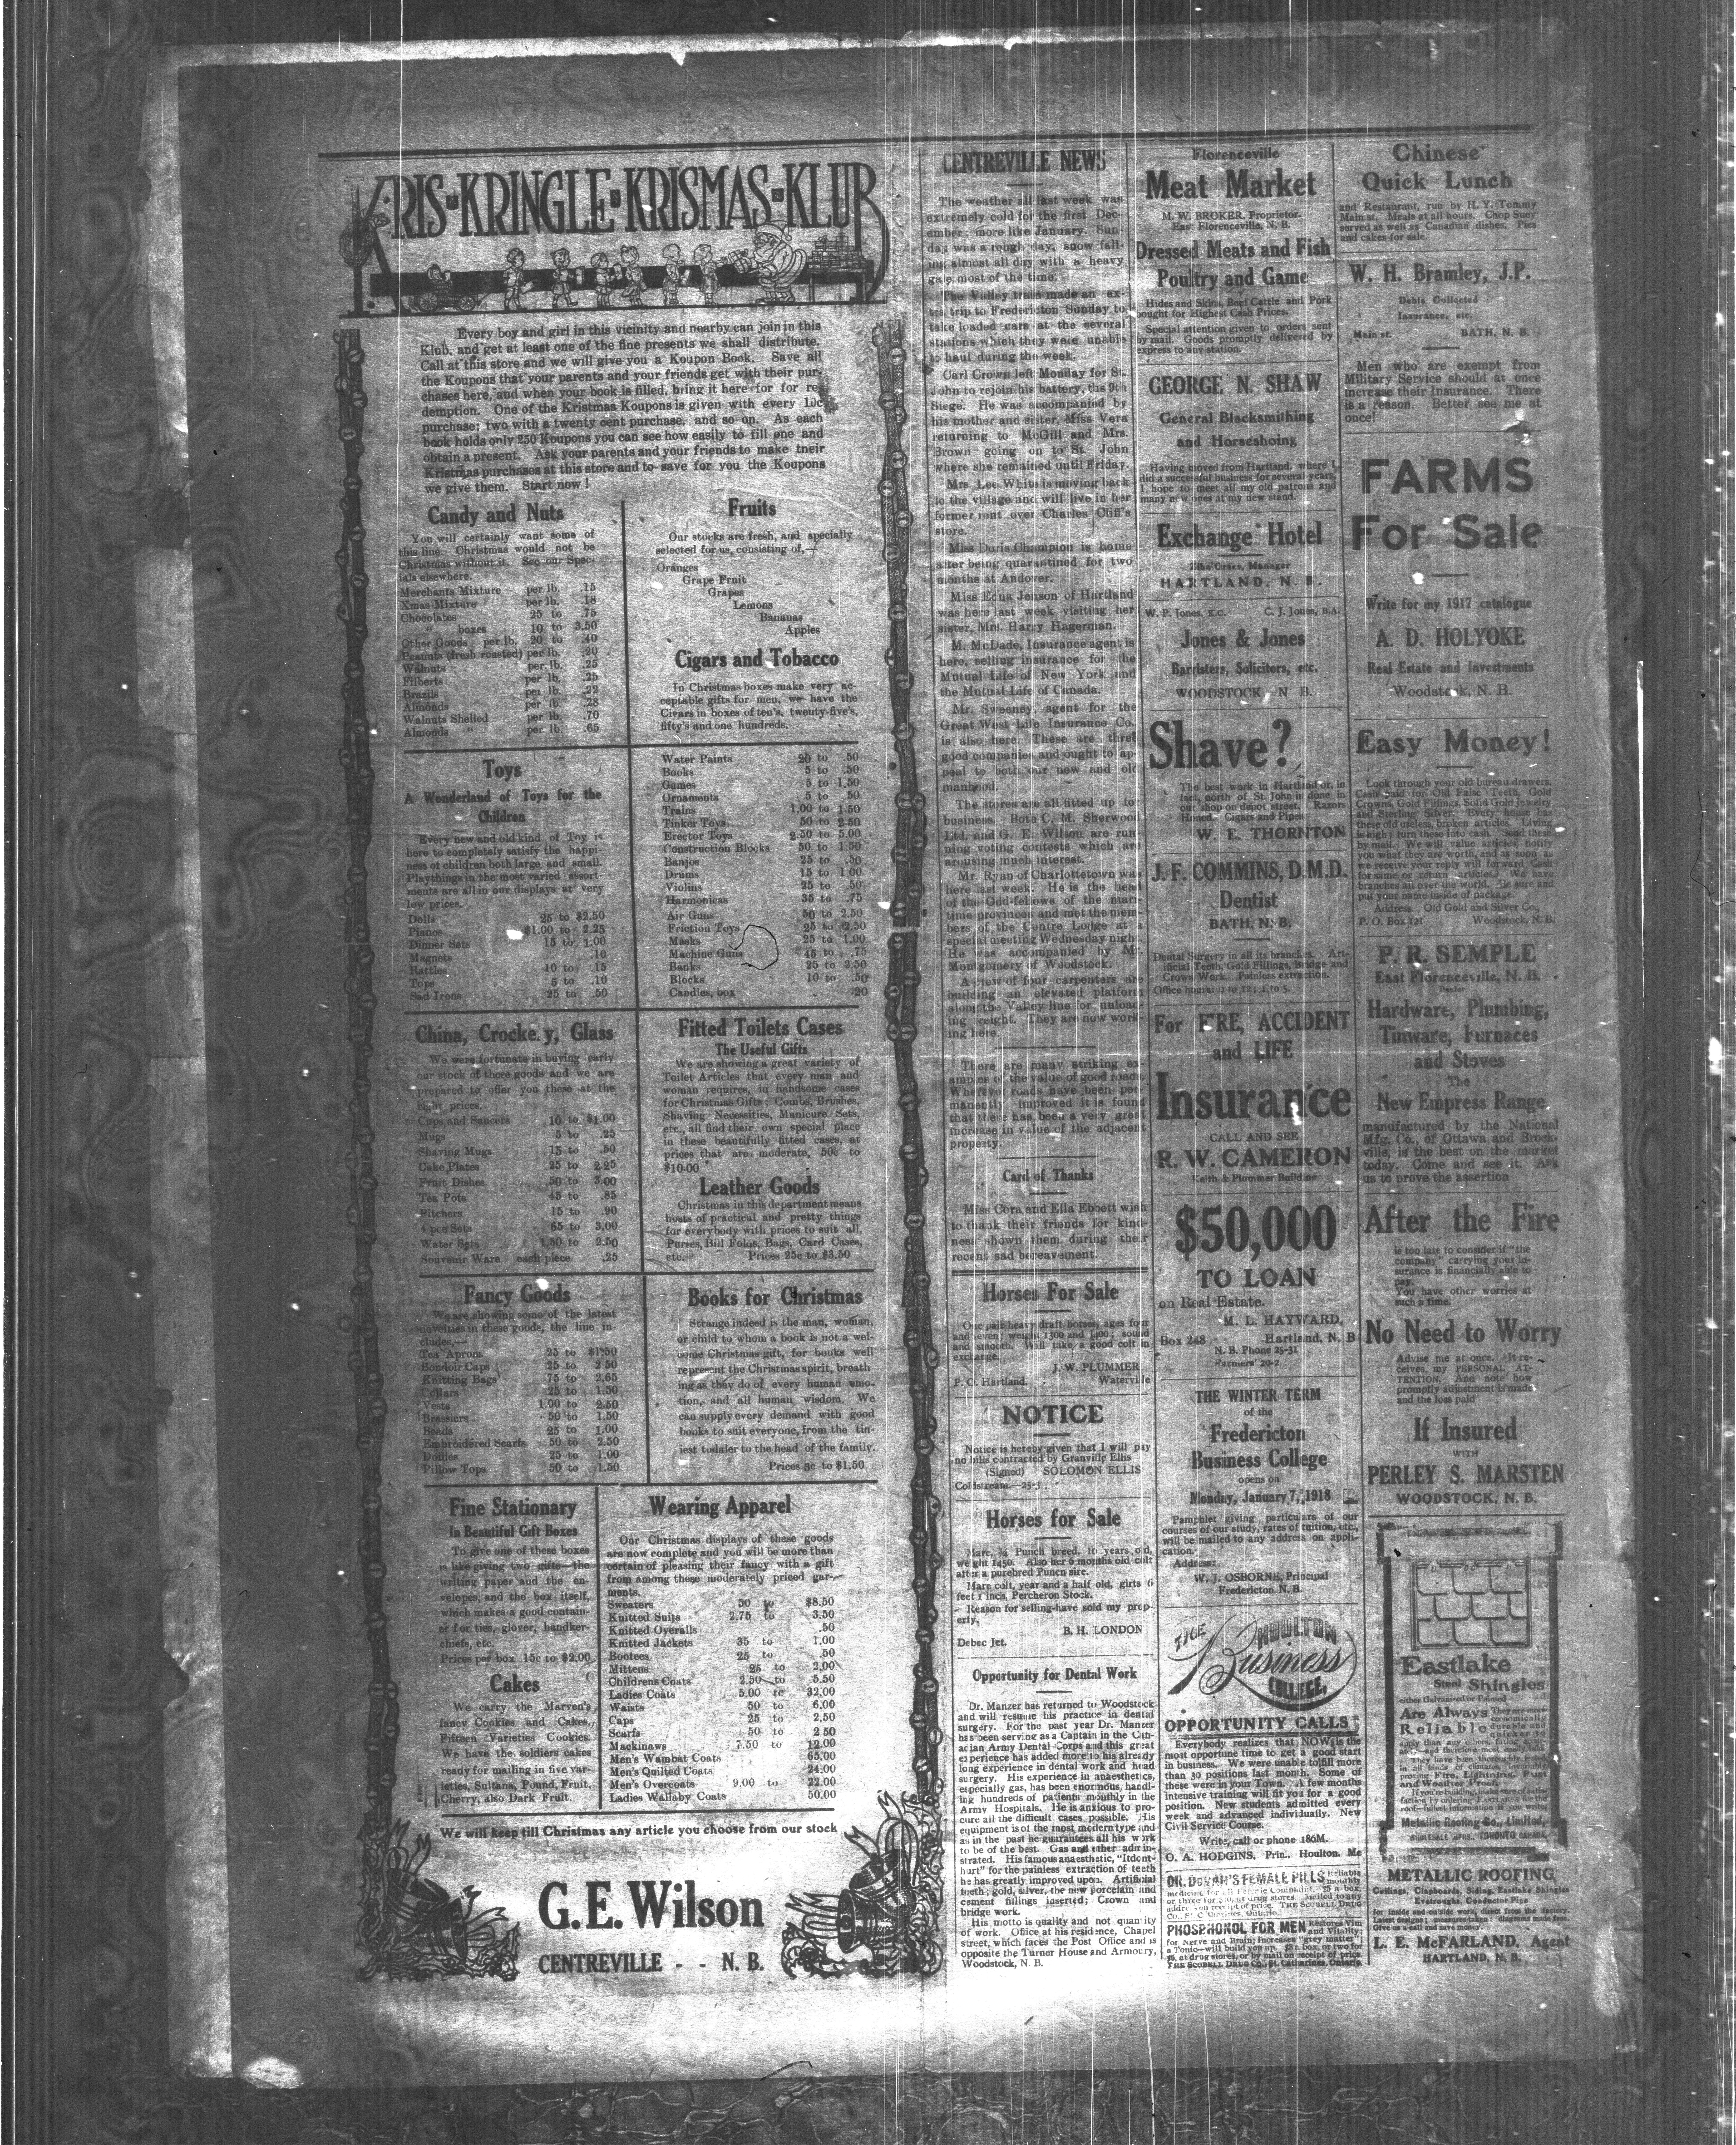 KRIS-KRINGLE-KRISMAS-KLUB
Every boy and girl in this vicinity and nearby can join in this
Klub, and get at least one of the fine presents we shall distribute,
Call at this store and we will give you a Koupon Book. Save all
the Koupons that your parents and your friends get with their pur-
chases here, and when your book is filled, bring it here for for re-
demption. One of the Kristmas Koupons is given with every 10c
purchase; two with a twenty cent purchase, and so on. As each
book holds only 250 Koupons you can see how easily to fill one and
obtain a present. Ask your parents and your friends to make tneir
Kristmas purchases at this store and to save for you the Koupons
we give them. Start now!
Candy and Nuts
You will certainly want some of
this line. Christmas would not be
Christmas without it. See our Spec-
ials elsewhere.
Merchants Mixture per lb. .15
Xmas Mixture per lb. .18
Chocolates 25 to .75
" boxes 10 to 3.50
Other Goods per lb. 20 to .40
Peanuts (fresh roasted) per lb. .20
Walnuts per lb. .25
Filberts per lb. .25
Brazils per lb. .22
Almonds per lb. .28
Walnuts Shelled per lb. .70
Almonds " per lb. .65
Fruits
Our stocks are fresh, and specially
selected for us, consisting of,—
Oranges
Grape Fruit
Grapes
Lemons
Bananas
Apples
Cigars and Tobacco
In Christmas boxes make very ac-
ceptable gifts for men, we have the
Cigars in boxes of ten's, twenty-five's,
fifty's and one hundreds.
Toys
A Wonderland of Toys for the
Children
Every new and old kind of Toy is
here to completely satisfy the happi-
ness of children both large and small.
Playthings in the most varied assort-
ments are all in our displays at very
low prices.
Dolls 25 to $2.50
Pianos $1.00 to 2.25
Dinner Sets 15 to 1.00
Magnets .10
Rattles 10 to .15
Tops 5 to .10
Sad Irons 25 to .50
Water Paints 20 to .50
Books 5 to .50
Games 5 to 1.50
Ornaments 5 to 50
Trains 1.00 to 1.50
Tinker Toys 50 to 2.50
Erector Toys 2.50 to 5.00
Construction Blocks 50 to 1.50
Banjos 25 to .50
Drums 15 to 1.00
Violins 25 to .50
Harmonicas 35 to .75
Air Guns 50 to 2.50
Friction Toys 25 to 2.50
Masks 25 to 1.00
Machine Guns 45 to .75
Banks 25 to 2.50
Blocks 10 to .50
Candles, box .20
China, Crocke.y, Glass
We were fortunate in buying early
our stock of those goods and we are
prepared to offer you these at the
right prices.
Cups and Saucers 10 to $1.00
Mugs 5 to .25
Shaving Mugs 15 to .50
Cake Plates 25 to 2.25
Fruit Dishes 50 to 3.00
Tea Pots 45 to .85
Pitchers 15 to .90
4 pce Sets 65 to 3.00
Water Sets 1.50 to 2.50
Souvenir Ware each piece .25
Fitted Toilets Cases
The Useful Gifts
We are showing a great variety of
Toilet Articles that every man and
woman requires, in handsome cases
for Christmas Gifts; Combs, Brushes,
Shaving Necessities, Manicure Sets,
etc., all find their own special place
in these beautifully fitted cases, at
prices that are moderate, 50c to
$10.00
Leather Goods
Christmas in this department means
hosts of practical and pretty things
for everybody with prices to suit all,
Purses, Bill Folds, Bags, Card Cases,
etc. Prices 25c to $3.50
Fancy Goods
We are showing some of the latest
novelties in these goods, the line in-
cludes,—
Tea Aprons 25 to $1.50
Boudoir Caps 25 to 2 50
Knitting Bags 75 to 2.65
Collars 25 to 1.50
Vests 1.00 to 2.50
Brassiers 50 to 1.50
Beads 25 to 1.00
Embroidered Scarfs 50 to 2.50
Doilies 25 to 1.00
Pillow Tops 50 to 1.50
Books for Christmas
Strange indeed is the man, woman,
or child to whom a book is not a wel-
come Christmas gift, for books well
represent the Christmas spirit, breath
ing as they do of every human emo-
tion, and all human wisdom. We
can supply every demand with good
books to suit everyone, from the tin-
iest todaler to the head of the family.
Prices 3c to $1.50
Fine Stationary
In Beautiful Gift Boxes
To give one of these boxes
is like giving two gifts—the
writing paper and the en-
velopes, and the box itself,
which makes a good contain-
er for ties, glover, handker-
chiefs, etc.
Prices per box 15c to $2.00
Cakes
We carry the Marven's
fancy Cookies and Cakes,
Fifteen Varieties Cookies.
We have the soldiers cakes
ready for mailing in five var-
ieties, Sultana, Pound, Fruit,
Cherry, also Dark Fruit.
Wearing Apparel
Our Christmas displays of these goods
are now complete and you will be more than
certain of pleasing their fancy with a gift
from among these moderately priced gar-
ments.
Sweaters 50 to $8.50
Knitted Suits 2.75 to 3.50
Knitted Overalls .50
Knitted Jackets 35 to 1.00
Bootees 25 to .50
Mittens 25 to 2.00
Childrens Coats 2.50 to 5.50
Ladies Coats 5.00 to 32.00
Waists 50 to 6.00
Caps 25 to 2.50
Scarfs 50 to 2 50
Mackinaws 7.50 to 12.00
Men's Wambat Coats 65.00
Men's Quilted Coats 24.00
Men's Overcoats 9.00 to 22.00
Ladies Wallaby Coats 50.00
We will keep till Christmas any article you choose from our stock
G. E. Wilson
CENTREVILLE - - N. B.
CENTREVILLE NEWS
The weather all last week was
extremely cold for the first Dec-
ember; more like January. Sun-
day was a rough day, snow fall-
ing almost all day with a heavy
gale most of the time.
The Valley train made an ex-
tra trip to Fredericton Sunday to
take loaded cars at the several
stations which they were unable
to haul during the week.
Carl Crown left Monday for St.
John to rejoin his battery, the 9th
Siege. He was accompanied by
his mother and sister, Miss Vera
returning to McGill and Mrs.
Brown going on to St. John
where she remained until Friday.
Mrs. Lee White is moving back
to the village and will live in her
former rent over Charles Cliff's
store.
Miss Doris Champion is home
after being quarantined for two
months at Andover.
Miss Edna Jenson of Hartland
was here last week visiting her
sister, Mrs. Harry Hagerman.
M. McDade, Insurance agent is
here, selling insurance for the
Mutual Life of New York and
the Mutual Life of Canada.
Mr. Sweeney, agent for the
Great West Life Insurance Co.
is also here. These are three
good companies and ought to ap-
peal to both our new and old
manhood.
The stores are all fitted up for
business. Both C. M. Sherwood
Ltd. and G. E. Wilson are run-
ning voting contests which are
arousing much interest.
Mr. Ryan of Charlottetown was
here last week. He is the head
of the Odd-fellows of the mari-
time provinces and met the mem-
bers of the Centre Lodge at a
special meeting Wednesday night
He was accompanied by Mr.
Montgomery of Woodstock.
A crew of four carpenters are
building an elevated platform
along the Valley line for unload-
ing freight. They are now work-
ing here.
There are many striking ex-
amples of the value of good roads
Wherever roads have been per-
manently improved it is found
that there has been a very great
increase in value of the adjacent
property.
Card of Thanks
Miss Cora and Ella Ebbett wish
to thank their friends for kind-
ness shown them during their
recent sad bereavement.
Horses For Sale
One pair heavy draft horses, ages four
and seven; weight 1300 and 1400; sound
and smooth. Will take a good colt in
exchange.
J. W. PLUMMER
P. O. Hartland. Waterville
NOTICE
Notice is hereby given that I will pay
no bills contracted by Granville Ellis
(Signed) SOLOMON ELLIS
Coldstream.—25-3
Horses for Sale
Mare, ¾ Punch breed, 10 years old,
weight 1450. Also her 6 months old colt
after a purebred Punch sire.
Mare colt, year and a half old, girts 6
feet 1 inch, Percheron Stock.
Reason for selling-have sold my prop-
erty.
B. H. LONDON
Debec Jct.
Opportunity for Dental Work
Dr. Manzer has returned to Woodstock
and will resume his practice in dental
surgery. For the past year Dr. Manzer
has been serving as a Captain in the Can-
adian Army Dental Corps and this great
experience has added more to his already
long experience in dental work and head
surgery. His experience in anaesthetics,
especially gas, has been enormous, handl-
ing hundreds of patients monthly in the
Army Hospitals. He is anxious to pro-
cure all the difficult cases possible. His
equipment is of the most modern type and
as in the past he guarantees all his work
to be of the best. Gas and ether admin-
strated. His famous anaesthetic, "Itdont-
hurt" for the painless extraction of teeth
he has greatly improved upon. Artificial
teeth; gold, silver, the new porcelain and
cement fillings inserted; Crown and
bridge work.
His motto is quality and not quantity
of work. Office at his residence, Chapel
street, which faces the Post Office and is
opposite the Turner House and Armoury,
Woodstock, N. B.
Florenceville
Meat Market
M. W. BROKER, Proprietor.
East Florenceville, N. B.
Dressed Meats and Fish
Poultry and Game
Hides and Skins, Beef Cattle and Pork
bought for Highest Cash Prices.
Special attention given to orders sent
by mail. Goods promptly delivered by
express to any station.
GEORGE N. SHAW
General Blacksmithing
and Horseshoing
Having moved from Hartland, where I
did a successful business for several years,
I hope to meet all my old patrons and
many new ones at my new stand.
Exchange Hotel
Zike Orser, Manager
HARTLAND, N. B.
W. P. Jones, K.C. C. J. Jones, B.A.
Jones & Jones
Barristers, Solicitors, etc.
WOODSTOCK, N B.
Shave?
The best work in Hartland or, in
fact, north of St. John is done in
our shop on depot street. Razors
Honed. Cigars and Pipes
W. E. THORNTON
J. F. COMMINS, D.M.D.
Dentist
BATH, N. B.
Dental Surgery in all its branches. Art-
ificial Teeth, Gold Fillings, Bridge and
Crown Work. Painless extraction.
Office hours: 9 to 12; 1 to 5.
For FIRE, ACCIDENT
and LIFE
Insurance
CALL AND SEE
R. W. CAMERON
Keith & Plummer Building
$50,000
TO LOAN
on Real Estate.
M. L. HAYWARD,
Box 248 Hartland, N. B
N. B. Phone 25-31
Farmers' 20-2
THE WINTER TERM
of the
Fredericton
Business College
opens on
Monday, January 7, 1918
Pamphlet giving particulars of our
courses of our study, rates of tuition, etc.,
will be mailed to any address on appli-
cation.
Address:
W. J. OSBORNE, Principal
Fredericton. N. B.
THE HOULTON
Business
COLLEGE,
OPPORTUNITY CALLS
Everybody realizes that NOW is the
most opportune time to get a good start
in business. We were unable to fill more
than 30 positions last month. Some of
these were in your Town. A few months
intensive training will fit you for a good
position. New students admitted every
week and advanced individually. New
Civil Service Course.
Write, call or phone 186M.
O. A. HODGINS, Prin., Houlton. Me
DR. DEVAN'S FEMALE PILLS
PHOSPHONOL FOR MEN Restores Vim
and Vitality;
for Nerve and Brain; increases "grey matter";
a Tonic—will build you up. $3 a box, or two for
$5, at drug stores, or by mail on receipt of price.
THE SCOBELL DRUG CO., St. Catharines, Ontario.
Chinese
Quick Lunch
and Restaurant, run by H. Y. Tommy
Main st. Meals at all hours. Chop Suey
served as well as Canadian dishes. Pies
and cakes for sale.
W. H. Bramley, J.P.
Debts Collected
Insurance, etc.
Main st. BATH, N. B.
Men who are exempt from
Military Service should at once
increase their Insurance. There
is a reason. Better see me at
once!
FARMS
For Sale
Write for my 1917 catalogue
A. D. HOLYOKE
Real Estate and Investments
Woodstock, N. B.
Easy Money!
Look through your old bureau drawers.
Cash paid for Old False Teeth, Gold
Crowns, Gold Fillings, Solid Gold Jewelry
and Sterling Silver. Every house has
these old useless, broken articles. Living
is high; turn these into cash. Send these
by mail. We will value articles, notify
you what they are worth, and as soon as
we receive your reply will forward Cash
for same or return articles. We have
branches all over the world. Be sure and
put your name inside of package.
Address. Old Gold and Silver Co.,
P. O. Box 121 Woodstock, N. B.
P. R. SEMPLE
East Florenceville, N. B.
Dealer
Hardware, Plumbing,
Tinware, Furnaces
and Stoves
The
New Empress Range,
manufactured by the National
Mfg. Co., of Ottawa and Brock-
ville, is the best on the market
today. Come and see it. Ask
us to prove the assertion
After the Fire
is too late to consider if "the
company" carrying your in-
surance is financially able to
pay.
You have other worries at
such a time.
No Need to Worry
Advise me at once. It re-
ceives my PERSONAL AT-
TENTION. And note how
promptly adjustment is made
and the loss paid
If Insured
WITH
PERLEY S. MARSTEN
WOODSTOCK, N. B.
Eastlake
Steel Shingles
either Galvanized or Painted
Are Always
Reliable
Metallic Roofing Co., Limited,
TORONTO CANADA
METALLIC ROOFING
Ceilings, Clapboards, Siding, Eastlake Shingles
Evetroughs, Conductor Pipe
for inside and outside work, direct from the factory.
Latest designs; measures taken; diagrams made free.
Give us a call and save money.
L. E. McFARLAND, Agent
HARTLAND, N. B.